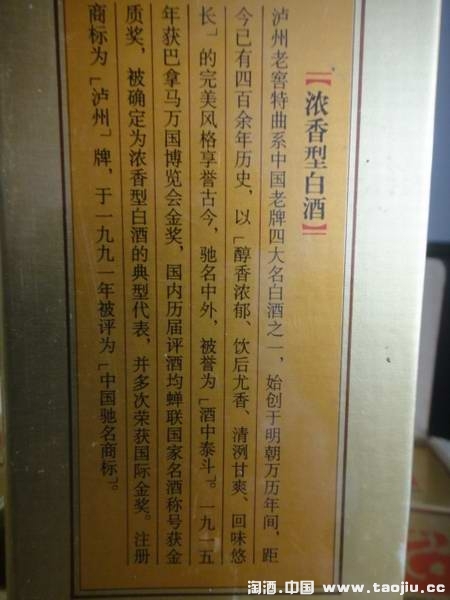 【浓香型白酒】
泸州老窖特曲系中国老牌四大名白酒之一，始创于明朝万历年间，距
今已有四百余年历史，以「醇香浓郁、饮后尤香、清洌甘爽、回味悠
长」的完美风格享誉古今，驰名中外，被誉为「酒中泰斗」。一九一五
年获巴拿马万国博览会金奖，国内历届评酒均蝉联国家名酒称号获金
质奖，被确定为浓香型白酒的典型代表，并多次荣获国际金奖。注册
商标为「泸州」牌，于一九九一年被评为「中国驰名商标」。
淘酒.中国 www.taojiu.cc